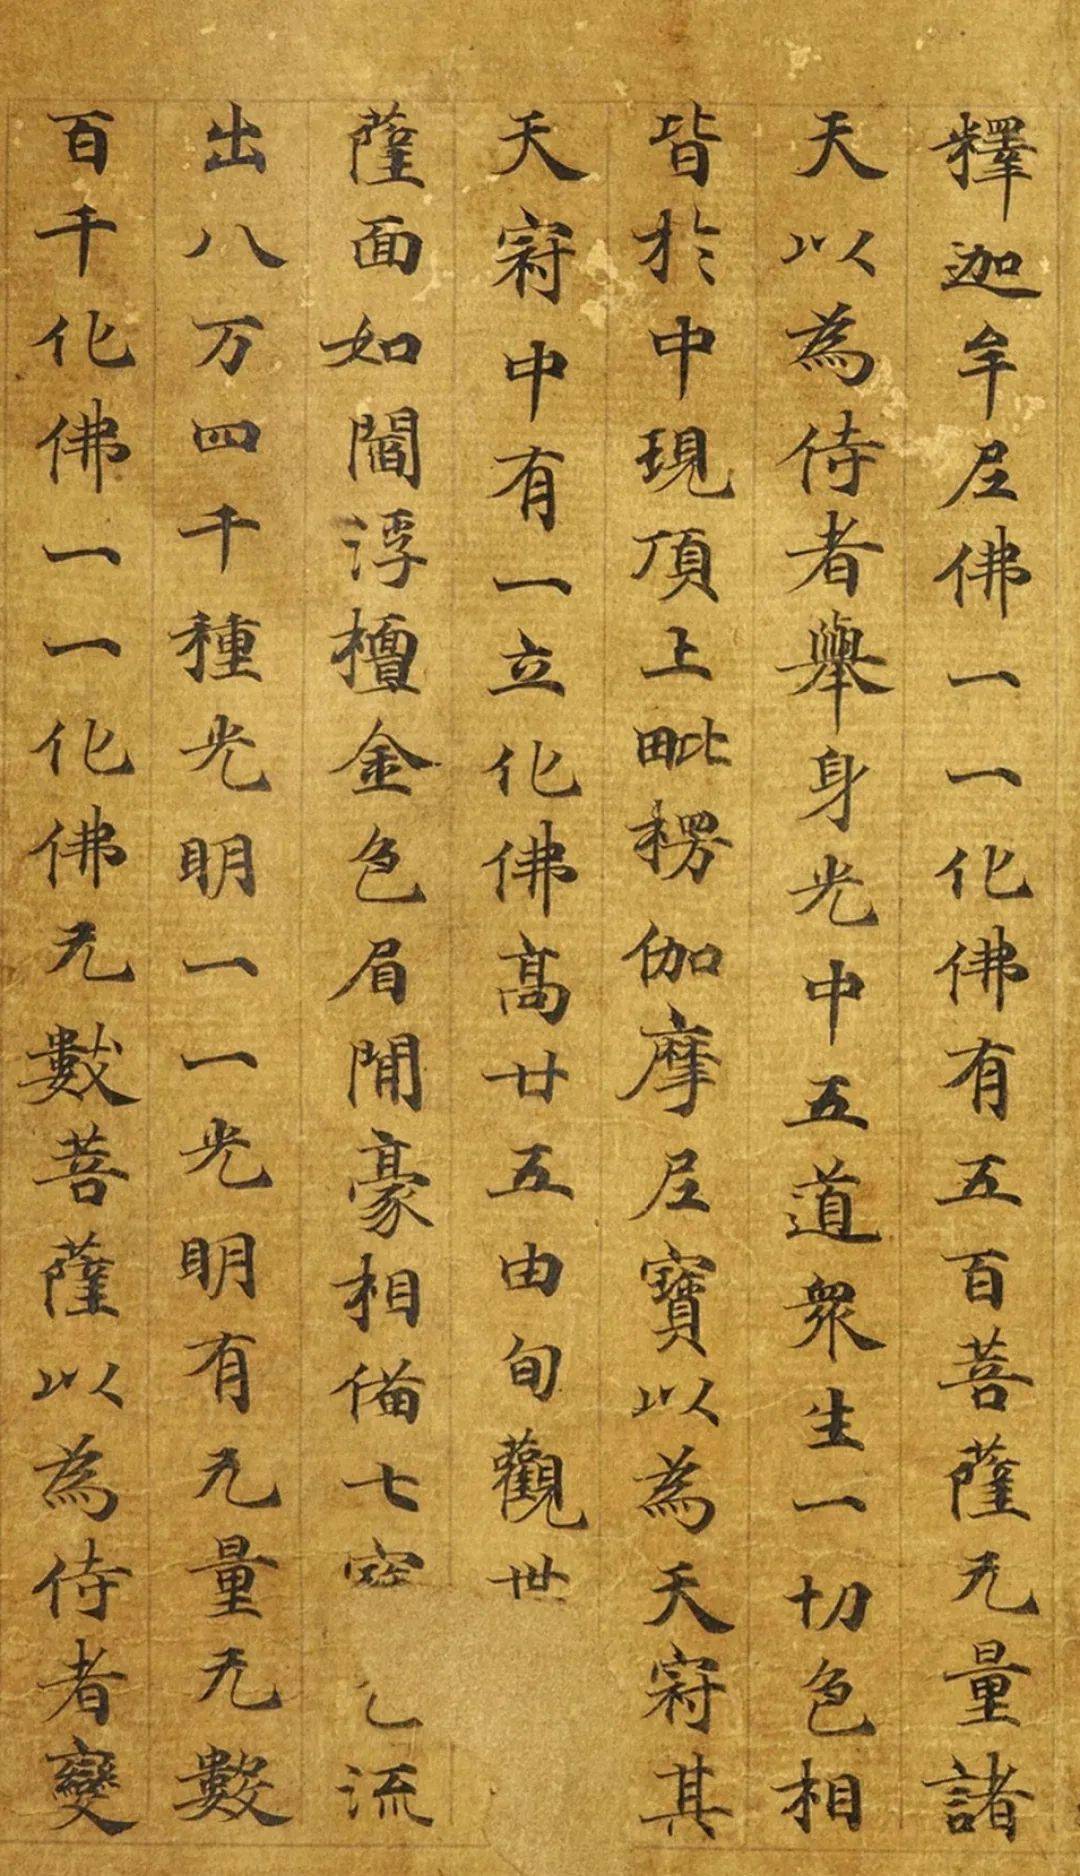 釋迦牟尼佛一一化佛有五百菩薩无量諸
天以為侍者舉身光中五道衆生一切色相
皆於中現頂上毗楞伽摩尼寶以為天冠其
天冠中有一立化佛高廿五由旬觀世
薩面如閻浮檀金色眉間豪相備七流
出八万四千種光明一一光明有无量无數
百千化佛一一化佛无數菩薩以為侍者變